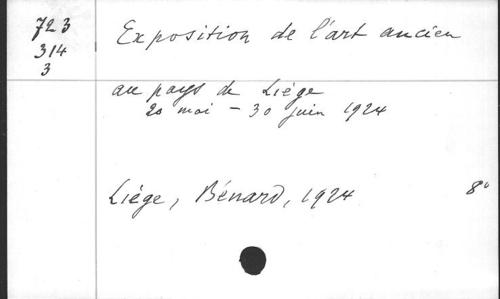 723
314
3
Exposition de l'art ancien
au pays de Liége
20 mai - 30 juin 1924
Liége, Bénard, 1924
8°